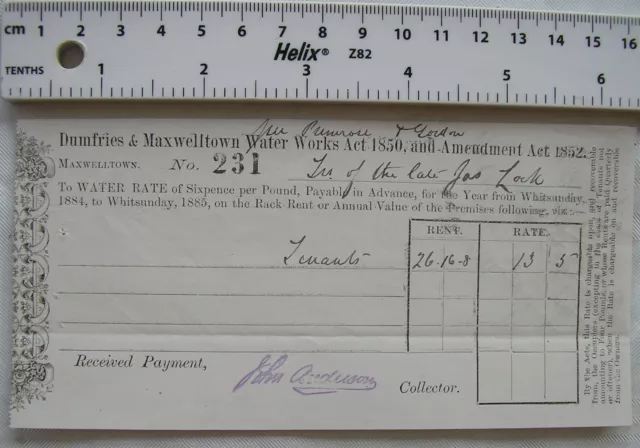 cm 1 2 3 4 5 6 7 8 9 10 11 12 13 14 15 16
Helix® Z82
TENTHS 1 2 3 4 5 6
Primrose & Gordon
Dumfries & Maxwelltown Water Works Act 1850, and Amendment Act 1852.
MAXWELLTOWN. No. 231 Trs of the late Jas Lock
To WATER RATE of Sixpence per Pound, Payable in Advance, for the Year from Whitsunday,
1884, to Whitsunday, 1885, on the Rack-Rent or Annual Value of the Premises following, viz:—
RENT. RATE.
Tenants 26-16-8 13 5
Received Payment,
John Anderson
Collector.
By the Acts, this Rate is chargeable upon, and recoverable
from, the Occupiers (excepting in the case of Tenants not
amounting to Four Pounds, or whose Rents are paid Quarterly
or oftener), when the Rate is chargeable on and recoverable
from the Owners.